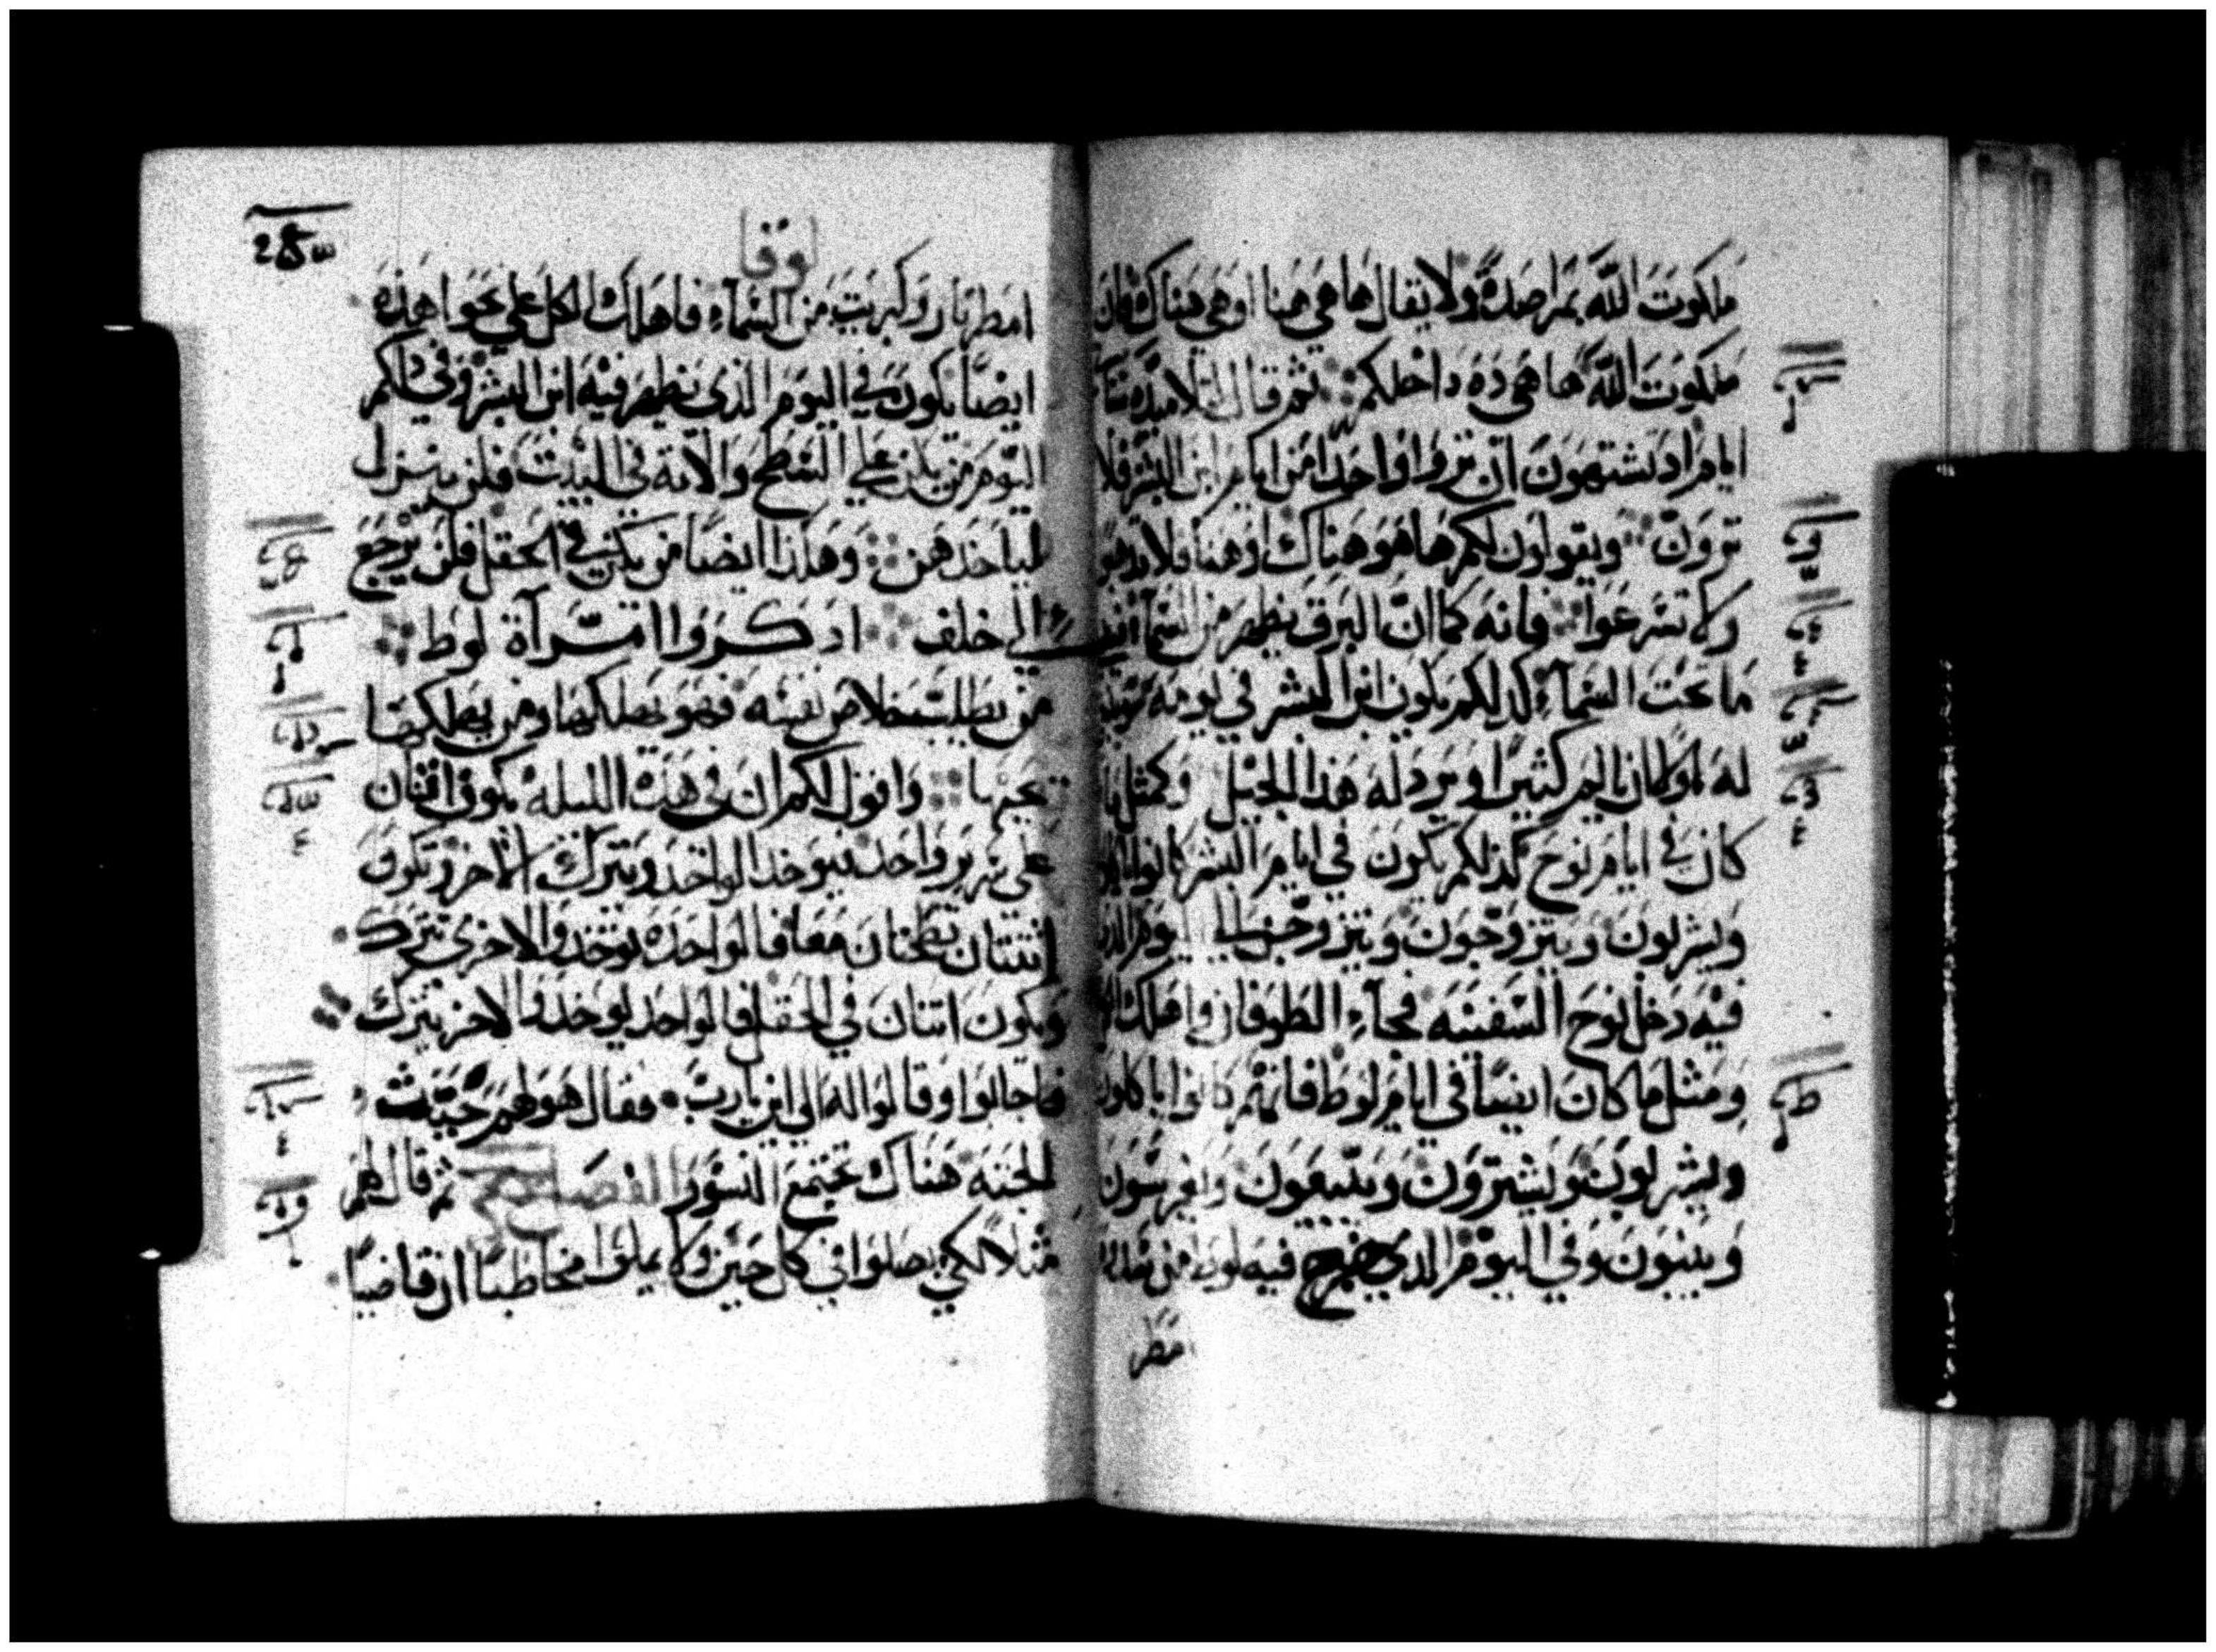 ملكوت الله بمراصدة ولا يقال ها هي هنا او هي هناك فان
ملكوت الله ها هي ده داخلكم ثم قال لتلاميذه ستاتي
ايام اذ تشتهون ان تروا واحدا من ايام ابن البشر فلا
ترون ويقولون لكم ها هو هناك او هنا فلا تذهبوا
ولا تسرعوا فانه كما ان البرق يظهر من السماء
ما تحت السماء كذلكم يكون ابن البشر في يومه
له اولا ان يالم كثيرا ويرذله هذا الجيل وكمثل ما
كان في ايام نوح كذلكم يكون في ايام البشر كانوا
ويشربون ويتزوجون ويتزوجن الي اليوم الذي
فيه دخل نوح السفينه فجاء الطوفان واهلك
ومثل ما كان ايضا في ايام لوط فانهم كانوا ياكلون
ويشربون ويشترون ويتبيعون ويغرسون
ويبنون وفي اليوم الذي خرج فيه لوط من
امطر
لوقا
امطر نار وكبريت من السماء فاهلك الكل علي نحوا هذه
ايضا يكون في اليوم الذي يظهر فيه ابن البشر وفي ذلكم
اليوم من يكن علي السطح والاته في البيت فلن ينزل
لياخذهن وهكذا ايضا من يكن في الحقل فلن يرجع
الي خلف اذكروا امرآة لوط
من يطلب خلاص نفسه فهو يهلكها ومن يهلكها
يحيها واقول لكم ان في هذه الليله يكون اثنان
علي سرير واحد فيوخذ الواحد ويترك الاخر وتكون
اثنتان تطحنان معا فالواحده توخذ والاخري تترك
ويكون اثنان في الحقل فالواحد يوخذ والاخر يترك
فاجابوا وقالوا له الي اين يارب فقال هو لهم حيث
الجثه هناك تجتمع النسور الفصل ثم قال لهم
مثلا لكي يصلوا في كل حين ولا يملوا مخاطبا ان قاضيا